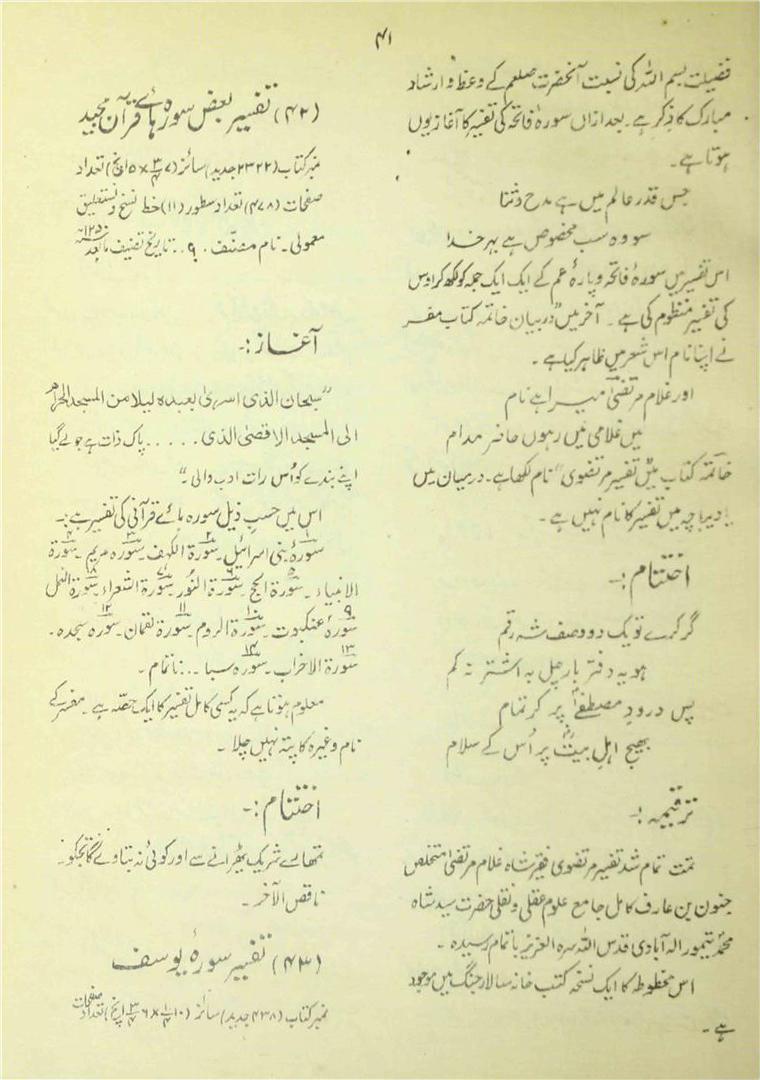 ۴۱
فضیلت بسم اللہ کی نسبت آنحضرت صلعم کے وعظ و ارشاد
مبارک کا ذکر ہے۔ بعد ازاں سورۂ فاتحہ کی تفسیر کا آغاز یوں
ہوتا ہے۔
جس قدر عالم میں ہے مدح و ثنا
سو وہ سب مخصوص ہے بہر خدا
اس تفسیر میں سورۂ فاتحہ و پارۂ عم کے ایک ایک جملہ کو لکھ کر اوس
کی تفسیر منظوم کی ہے۔ آخر میں "در بیان خاتمہ کتاب مفسر
نے اپنا نام اس شعر میں ظاہر کیا ہے۔
اور غلام مرتضیٰ میرا ہے نام
میں غلامی میں رہوں حاضر مدام
خاتمہ کتاب میں "تفسیر مرتضوی" نام لکھا ہے۔ درمیان میں
یا دیباچہ میں تفسیر کا نام نہیں ہے۔
اختتام:۔
گر کرے تو یک دو وصف شہ رقم
ہو یہ دفتر بار چل بہ اشتر نہ کم
پس درودِ مصطفےٰ پر کر تمام
بھیج اہلِ بیت پر اُس کے سلام
ترقیمہ:۔
تمت تمام شد تفسیر مرتضوی فقیر شاہ غلام مرتضیٰ المتخلص
جنون بن عارف کامل جامع علوم عقلی و نقلی حضرت سید شاہ
محمد تیمور الہ آبادی قدس اللہ سرہ العزیز باتمام رسیدہ۔
اس مخطوطہ کا ایک نسخہ کتب خانہ سالار جنگ میں موجود
ہے۔
(۴۲) تفسیر بعض سورہ ہائے قرآن مجید
نمبر کتاب (۲۳۲۲ جدید) سائز (۷ ۳/۴ × ۵ انچ) تعداد
صفحات (۴۷۸) تعداد سطور (۱۱) خط نسخ و نستعلیق
معمولی۔ نام مصنف۔ ۹۔۔ تاریخ تصنیف مابعد ۱۲۵۰ھ
آغاز:۔
"سبحان الذی اسریٰ بعبدہ لیلا من المسجد الحرام
الی المسجد الاقصیٰ الذی ..... پاک ذات ہے جو لے گیا
اپنے بندے کو اُس رات ادب والی۔"
اس میں حسبِ ذیل سورہ ہائے قرآنی کی تفسیر ہے:۔
۱ سورۂ بنی اسرائیل۔ ۲ سورۃ الکہف۔ ۳ سورہ مریم۔ ۴ سورۃ
الانبیاء۔ ۵ سورۃ الحج۔ ۶ سورۃ النور۔ ۷ سورۃ الشعراء۔ ۸ سورۃ النمل
۹ سورۂ عنکبوت۔ ۱۰ سورۃ الروم۔ ۱۱ سورۃ لقمان۔ ۱۲ سورہ سجدہ۔
۱۳ سورۃ الاحزاب۔ ۱۴ سورہ سبا ... ناتمام۔
معلوم ہوتا ہے کہ یہ کسی کامل تفسیر کا ایک حصّہ ہے۔ مفسر کے
نام وغیرہ کا پتہ نہیں چلا۔
اختتام:۔
تمھارے شریک ٹھیرانے سے اور کوئی نہ بتاوے گا تجکو۔
ناقص الآخر۔
(۴۳) تفسیر سورۂ یوسف
نمبر کتاب (۴۳۸ جدید) سائز (۱۰ ۱/۴ × ۶ ۳/۴ انچ) تعداد صفحات